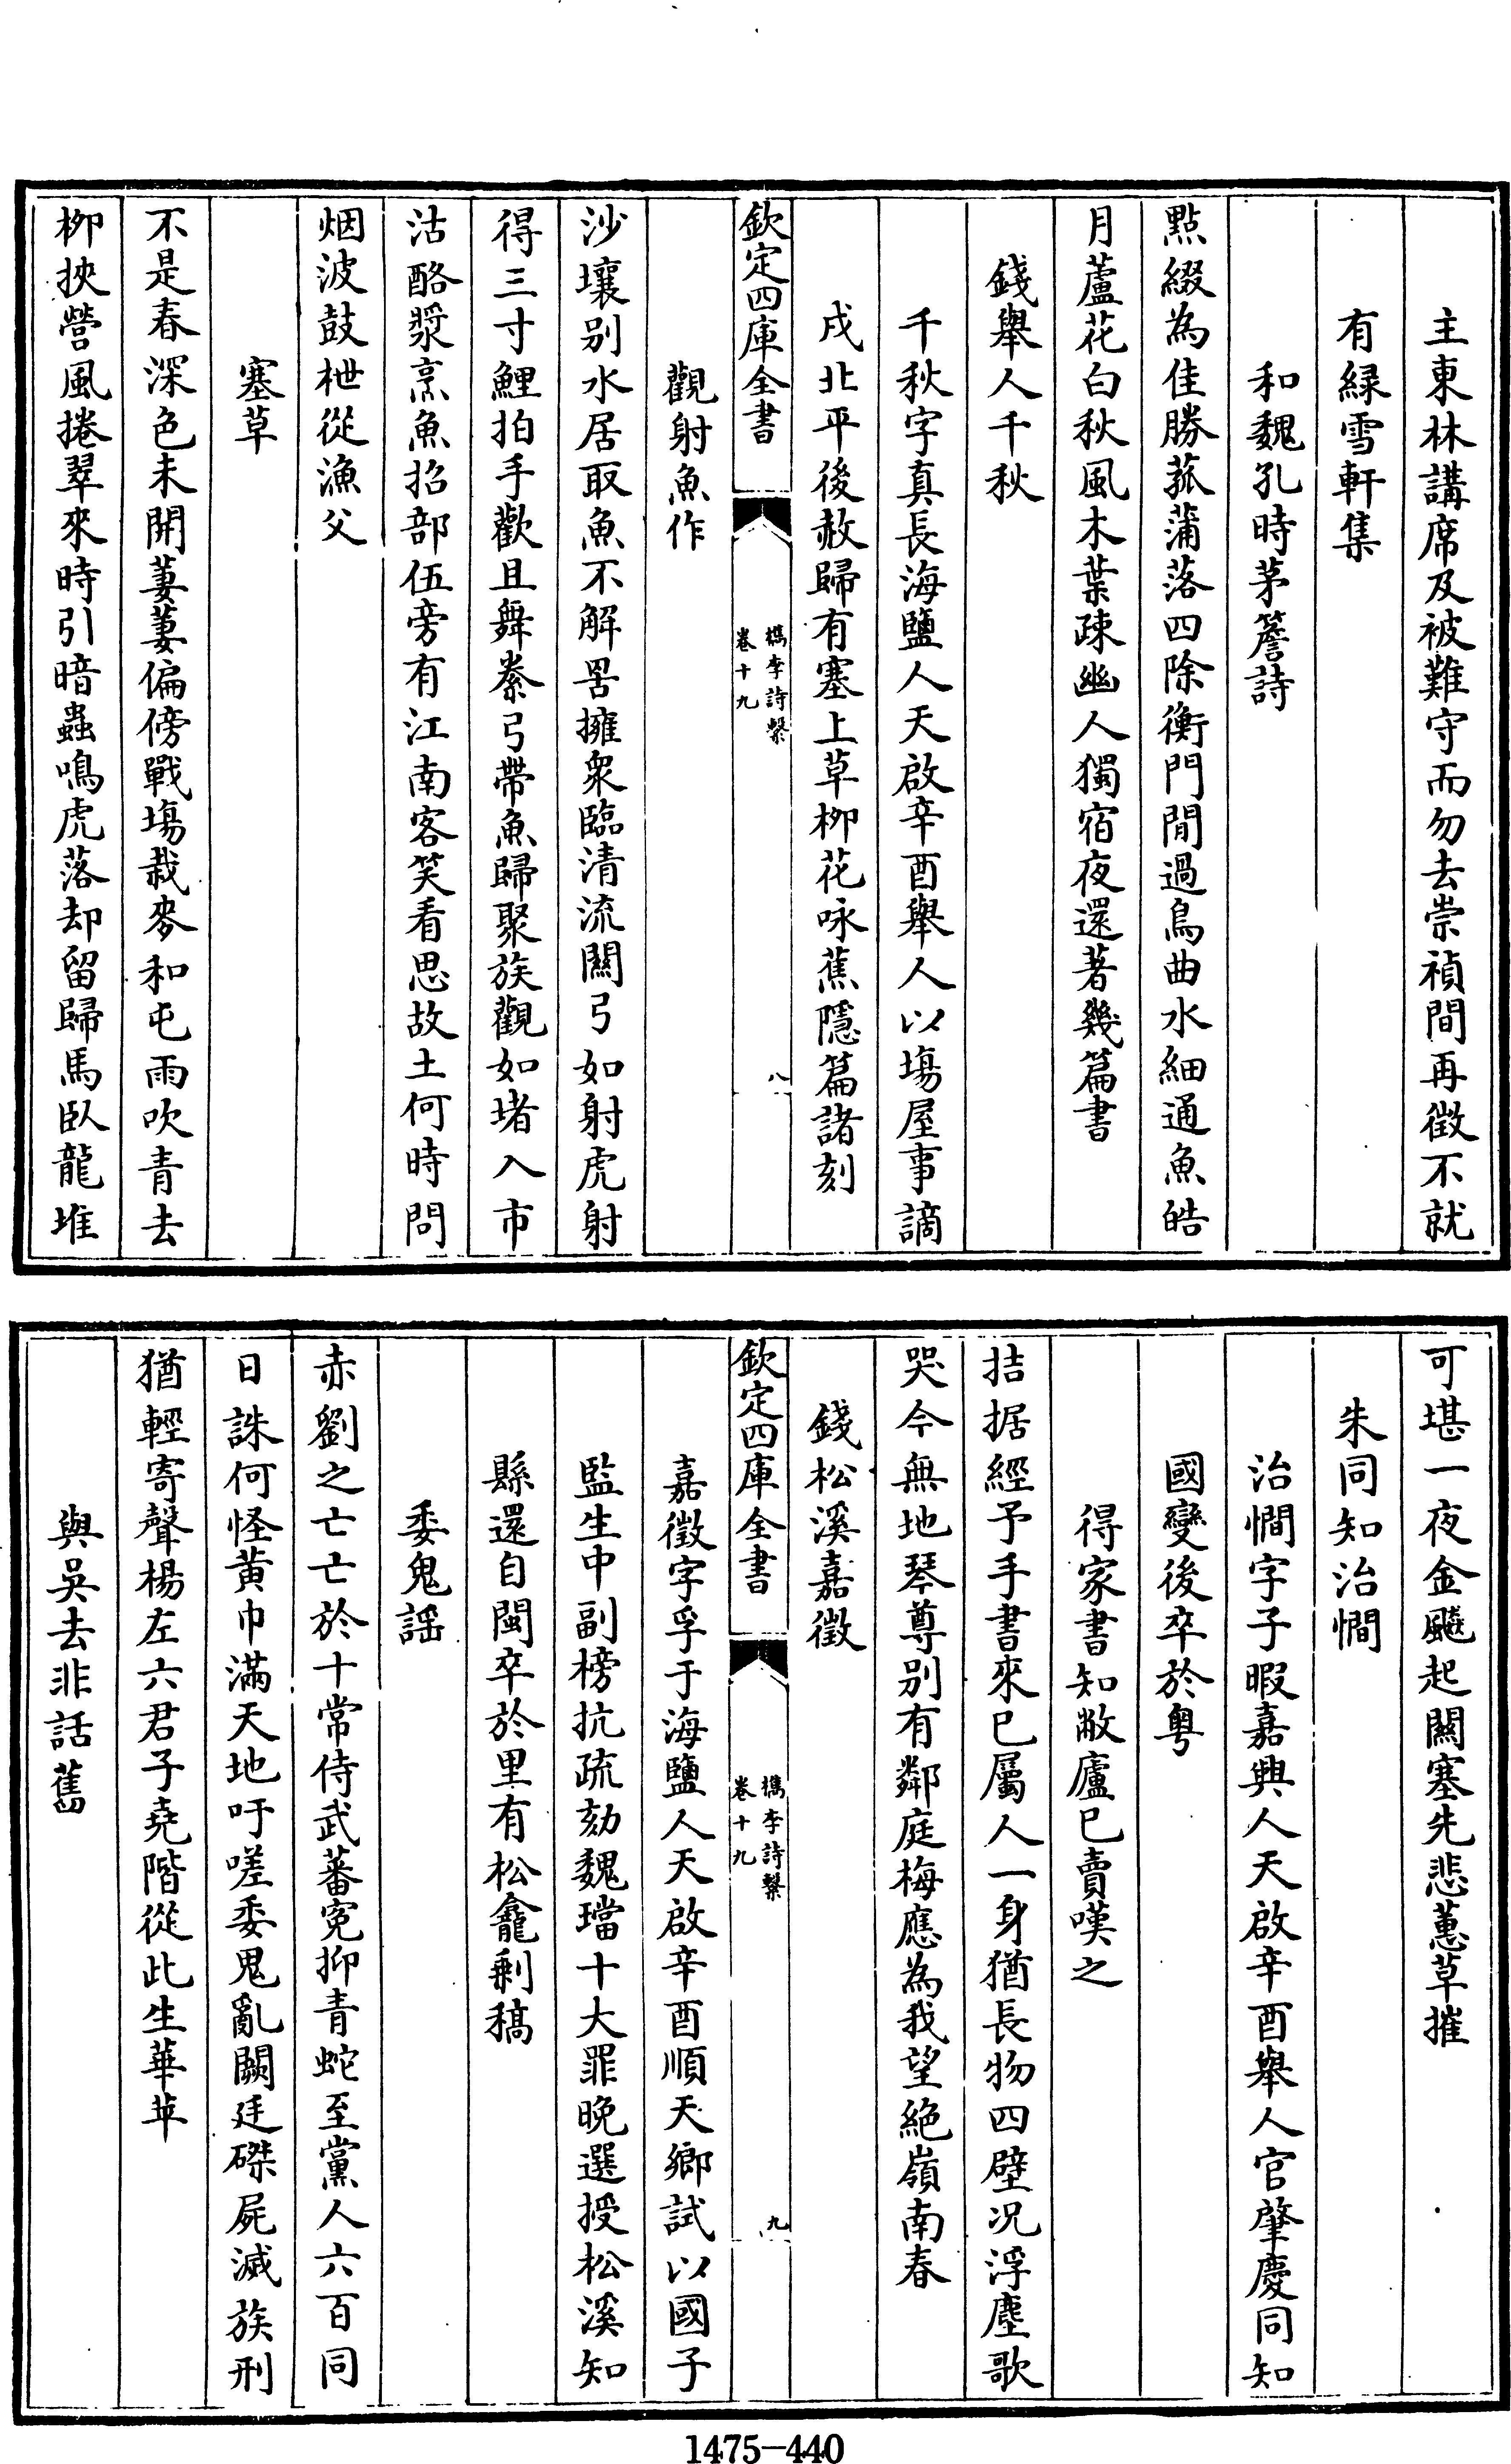 主東林講席及被難守而勿去崇禎間再徴不就
有緑雪軒集
和魏孔時茅簷詩
點綴為佳勝菰蒲落四除衡門閒過鳥曲水細通魚皓
月蘆花白秋風木葉疎幽人獨宿夜還著幾篇書
錢舉人千秋
千秋字真長海鹽人天啟辛酉舉人以塲屋事謫
戍北平後赦歸有塞上草柳花咏蕉隱篇諸刻
欽定四庫全書
檇李詩繫
卷十九
八
觀射魚作
沙壤别水居取魚不解罟擁衆臨清流關弓如射虎射
得三寸鯉拍手歡且舞橐弓帶魚歸聚族觀如堵入市
沽酪漿烹魚招部伍旁有江南客笑看思故土何時問
烟波鼓枻從漁父
塞草
不是春深色未開萋萋偏傍戰塲栽麥和屯雨吹青去
柳挾營風捲翠來時引暗蟲鳴虎落却留歸馬臥龍堆
可堪一夜金飈起闗塞先悲蕙草摧
朱同知治憪
治憪字子暇嘉興人天啟辛酉舉人官肇慶同知
國變後卒於粤
得家書知敝廬已賣嘆之
拮据經予手書來已屬人一身猶長物四壁况浮塵歌
哭今無地琴尊别有鄰庭梅應為我望絶嶺南春
錢松溪嘉徴
欽定四庫全書
檇李詩繫
卷十九
九
嘉徴字孚于海鹽人天啟辛酉順天鄉試以國子
監生中副榜抗疏劾魏璫十大罪晚選授松溪知
縣還自閩卒於里有松龕剩稿
委鬼謡
赤劉之亡亡於十常侍武蕃寃抑青蛇至黨人六百同
日誅何怪黄巾滿天地吁嗟委鬼亂闕廷磔屍滅族刑
猶輕寄聲楊左六君子堯階從此生華苹
與吳去非話舊
1475-440